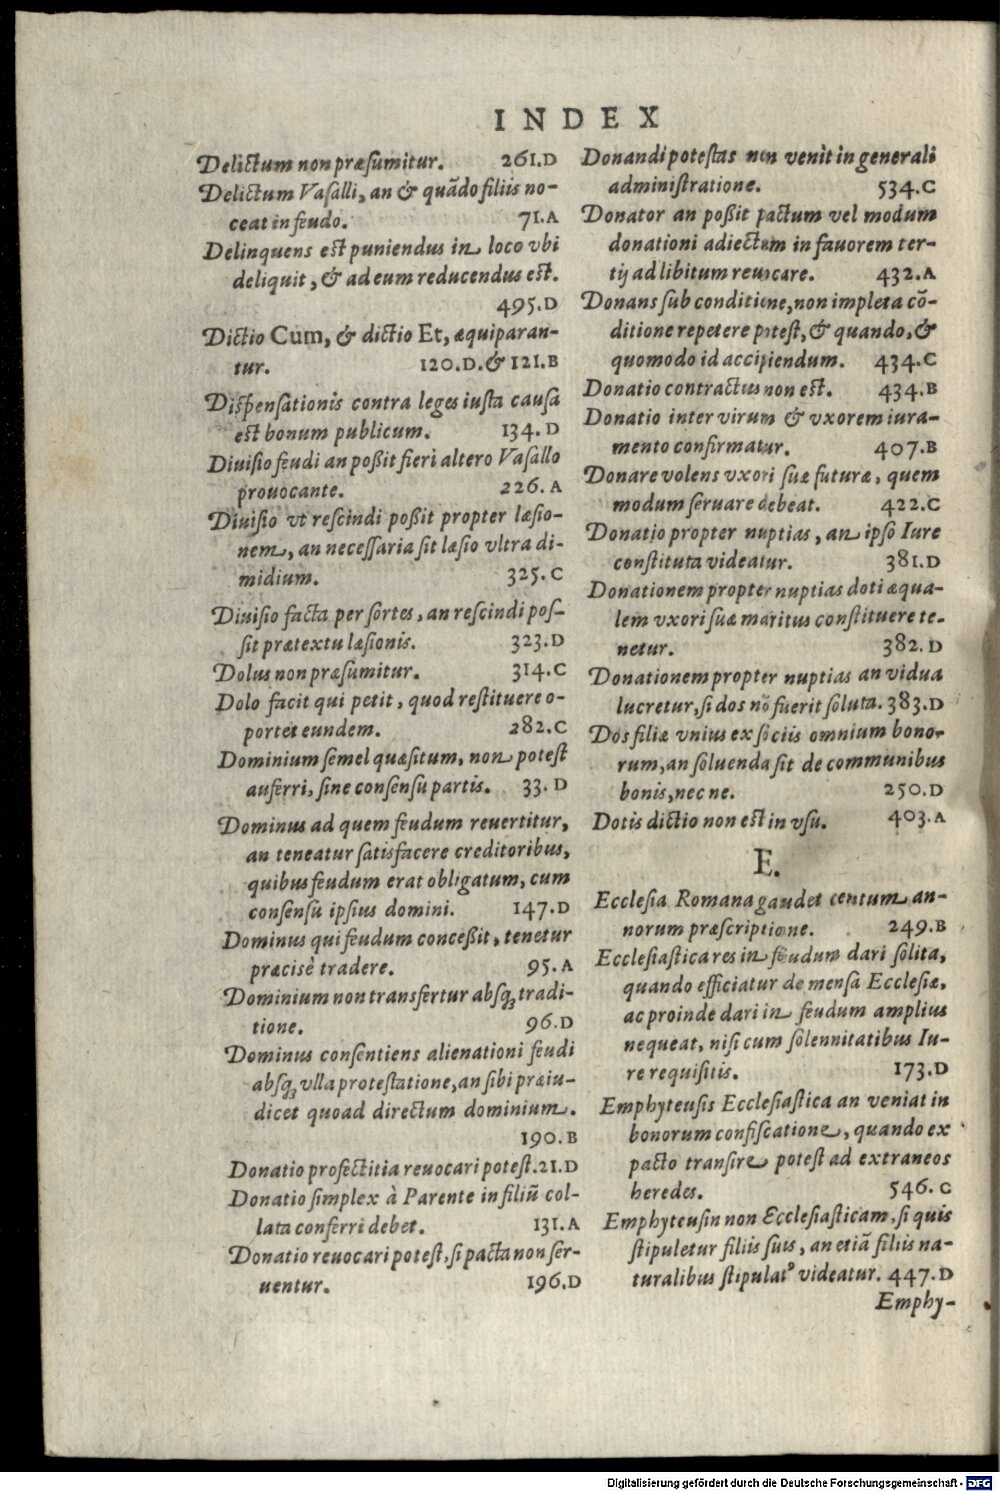 INDEX
Delictum non præsumitur. 261.D
Delictum Vasalli, an & quãdo filiis no-
ceat in feudo. 71.A
Delinquens est puniendus in loco vbi
deliquit, & ad eum reducendus est.
495.D
Dictio Cum, & dictio Et, æquiparan-
tur. 120.D.& 121.B
Dispensationis contra leges iusta causa
est bonum publicum. 134.D
Diuisio feudi an poßit fieri altero Vasallo
prouocante. 226.A
Diuisio vt rescindi poßit propter læsio-
nem, an necessaria sit læsio vltra di-
midium. 325.C
Diuisio facta per sortes, an rescindi pos-
sit prætextu læsionis. 323.D
Dolus non præsumitur. 314.C
Dolo facit qui petit, quod restituere o-
portet eundem. 282.C
Dominium semel quæsitum, non potest
auferri, sine consensu partis. 33.D
Dominus ad quem feudum reuertitur,
an teneatur satisfacere creditoribus,
quibus feudum erat obligatum, cum
consensu ipsius domini. 147.D
Dominus qui feudum conceßit, tenetur
præcisè tradere. 95.A
Dominium non transfertur absq; tradi-
tione. 96.D
Dominus consentiens alienationi feudi
absq; vlla protestatione, an sibi præiu-
dicet quoad directum dominium.
190.B
Donatio profectitia reuocari potest. 21.D
Donatio simplex à Parente in filiũ col-
lata conferri debet. 131.A
Donatio reuocari potest, si pacta non ser-
uentur. 196.D
Donandi potestas non venit in generali
administratione. 534.C
Donator an poßit pactum vel modum
donationi adiectum in fauorem ter-
tij ad libitum reuocare. 432.A
Donans sub conditione, non impleta cõ-
ditione repetere potest, & quando, &
quomodo id accipiendum. 434.C
Donatio contractus non est. 434.B
Donatio inter virum & vxorem iura-
mento confirmatur. 407.B
Donare volens vxori suæ futuræ, quem
modum seruare debeat. 422.C
Donatio propter nuptias, an ipso Iure
constituta videatur. 381.D
Donationem propter nuptias doti æqua-
lem vxori suæ maritus constituere te-
netur. 382.D
Donationem propter nuptias an vidua
lucretur, si dos nõ fuerit soluta. 383.D
Dos filiæ vnius ex sociis omnium bono-
rum, an soluenda sit de communibus
bonis, nec ne. 250.D
Dotis dictio non est in vsu. 403.A
E.
Ecclesia Romana gaudet centum an-
norum præscriptione. 249.B
Ecclesiastica res in feudum dari solita,
quando efficiatur de mensa Ecclesiæ,
ac proinde dari in feudum amplius
nequeat, nisi cum solennitatibus Iu-
re requisitis. 173.D
Emphyteusis Ecclesiastica an veniat in
bonorum confiscatione, quando ex
pacto transire potest ad extraneos
heredes. 546.C
Emphyteusin non Ecclesiasticam, si quis
stipuletur filiis suis, an etiã filiis na-
turalibus stipulatꝰ videatur. 447.D
Emphy-
Digitalisierung gefördert durch die Deutsche Forschungsgemeinschaft - DFG